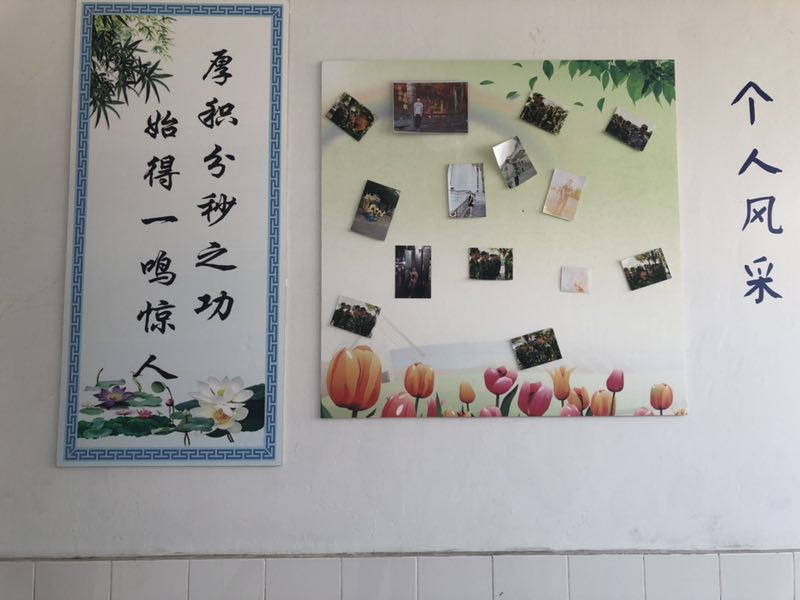 厚积分秒之功
始得一鸣惊人
个人风采